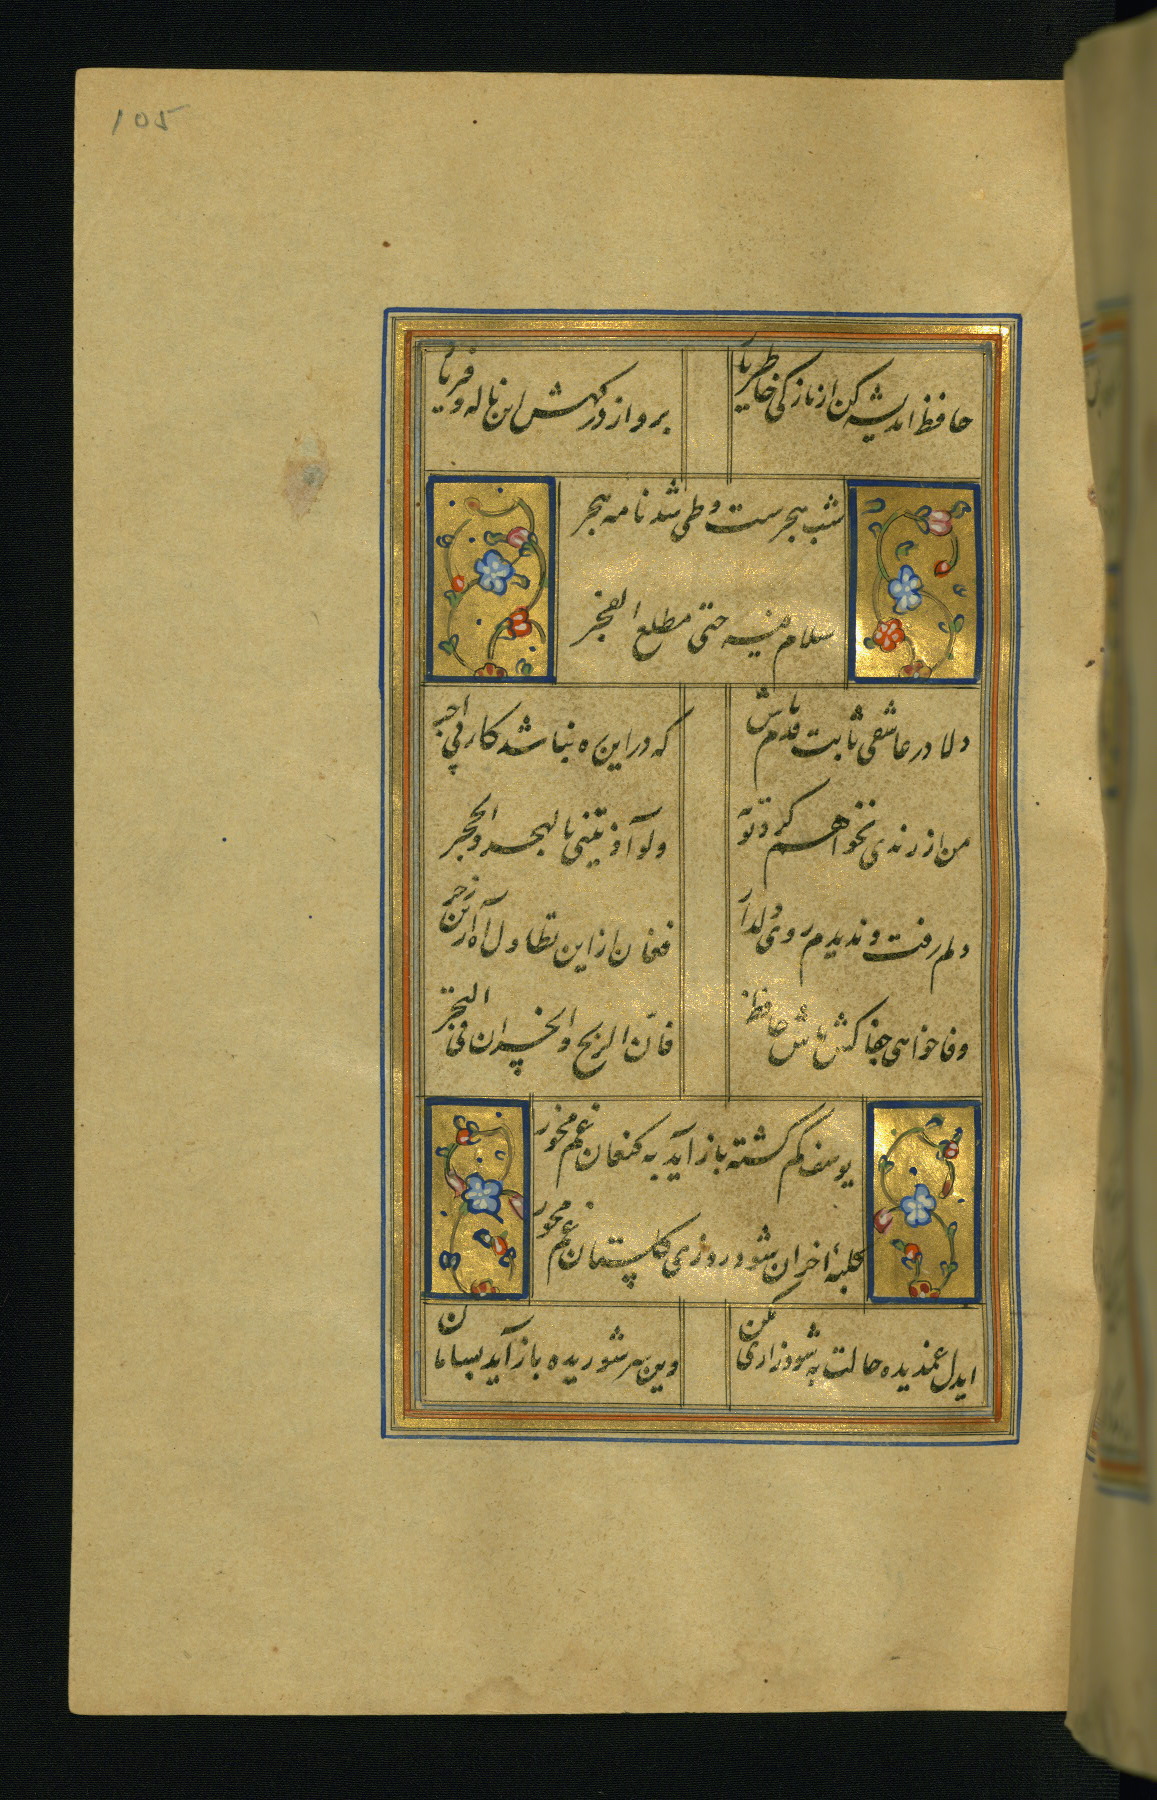 105
حافظ اندیشه کن از نازکی خاطر یار
برو از درگهش این ناله و فریاد
شب هجرست و طی شد نامه هجر
سلام فیه حتی مطلع الفجر
دلا در عاشقی ثابت قدم باش
که در این ره نباشد کار بی اجر
من از رندی نخواهم کرد توبه
ولو آذیتنی بالهجر والحجر
دلم رفت و ندیدم روی دلدار
فغان از این تطاول آه ازین زجر
وفا خواهی جفا کش باش حافظ
فان الربح والخسران فی التجر
یوسف گم گشته باز آید به کنعان غم مخور
کلبهٔ احزان شود روزی گلستان غم مخور
ایدل غمدیده حالت به شود زاری مکن
وین سر شوریده باز آید بسامان